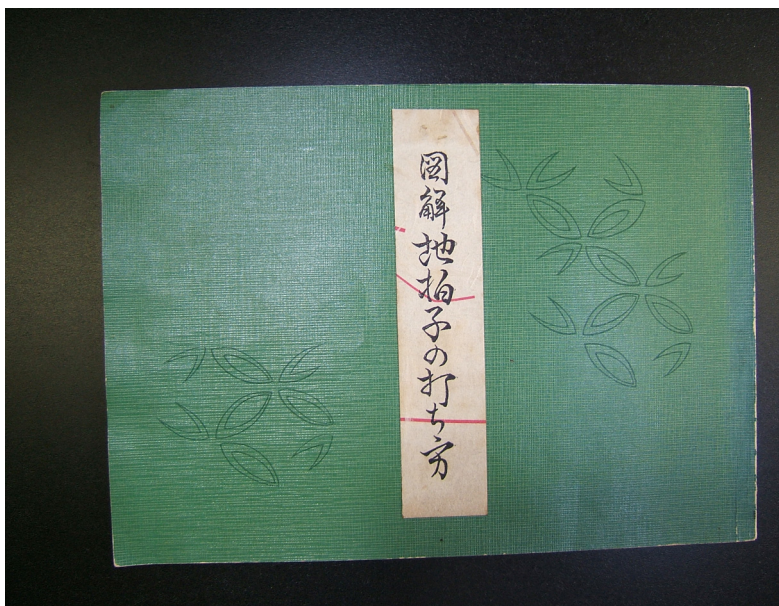 図解地拍子の打ち方